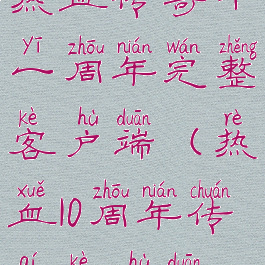 热血传奇十
yī zhōu nián wán zhěng
一周年完整
kè hù duān rè
客户端（热
xuè zhōu nián chuán
血10周年传
qí kè hù duān